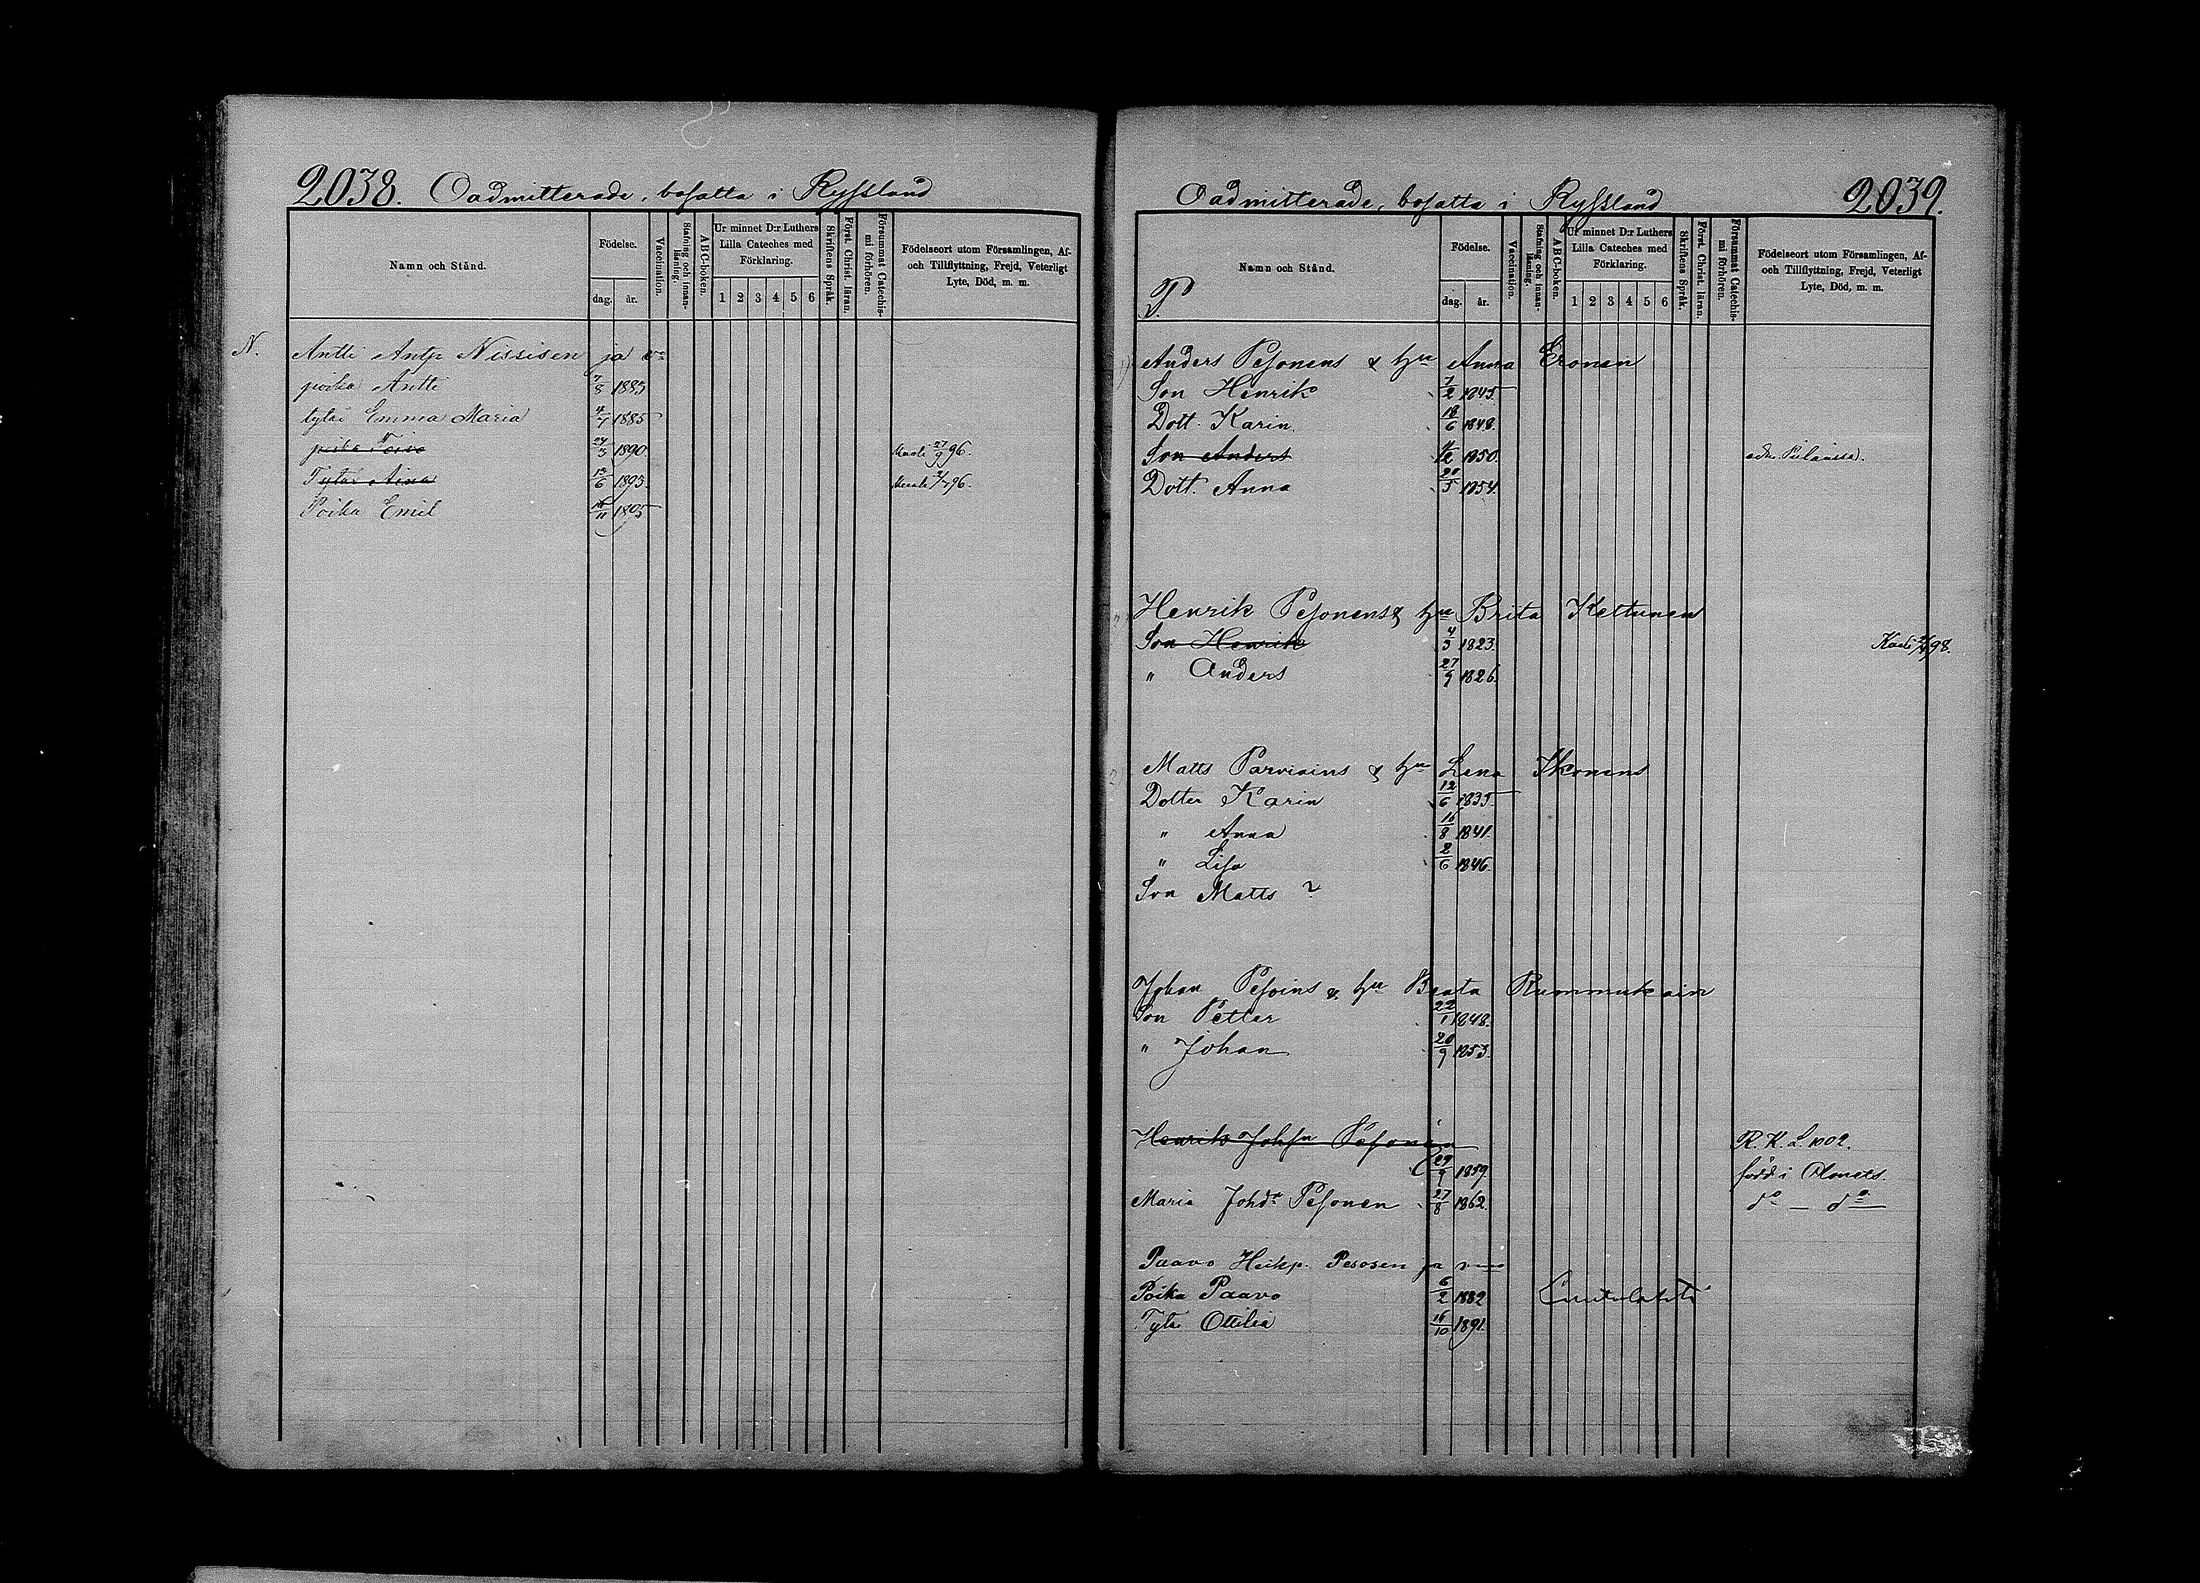 2038. Oadmitterade, bosatta i Ryssland
Namn och Stånd.
Födelse.
dag. år.
Vaccination.
Stafning och innanläsning.
ABC-boken.
Ur minnet D:r Luthers Lilla Cateches med Förklaring.
1 2 3 4 5 6
Skriftens Språk.
Först. Christ. läran.
Försummat Catechismi förhören.
Födelseort utom Församlingen, Af- och Tillflyttning, Frejd, Veterligt Lyte, Död, m. m.
N. Antti Antp Nissisen ja v:
poika Antti 7/8 1883
tytär Emma Maria 4/7 1885
poika Toivo 1890 kuoli 27/9 96.
Tytär Aina 13/6 1893. kuoli 96.
Poika Emil 1895
Oadmitterade, bosatta i Ryssland 2039.
Namn och Stånd.
P.
Födelse.
dag. år.
Vaccination.
Stafning och innanläsning.
ABC-boken.
Ur minnet D:r Luthers Lilla Cateches med Förklaring.
1 2 3 4 5 6
Skriftens Språk.
Först. Christ. läran.
Försummat Catechismi förhören.
Födelseort utom Församlingen, Af- och Tillflyttning, Frejd, Veterligt Lyte, Död, m. m.
Anders Pesonens & hu Anna Eronen
Son Henrik 7/2 1845
Dott. Karin 18/6 1848.
Son Anders 1850.
Dott. Anna 20/5 1854.
Henrik Pesonens & hu Brita Kettunen
Son Henrik 4/3 1823. Kuoli 98.
" Anders 27/9 1826.
Matts Parviains & hu Lena Ikonens
Dotter Karin 12/6 1835.
" Anna 16/8 1841.
" Lisa 2/6 1846.
Son Matts ?
Johan Pesoins & hu Beata Rummukain
Son Petter 22/1 1848.
" Johan 20/9 1853.
Henrik Johsn Pesonen R. K. L. 1002.
29/9 1859. född i Olonets.
Maria Johds Pesonen 27/8 1862. do — do
Paavo Heikp. Pesosen ja vmo
Poika Paavo 6/2 1882
Tytär Ottilia 16/10 1891.